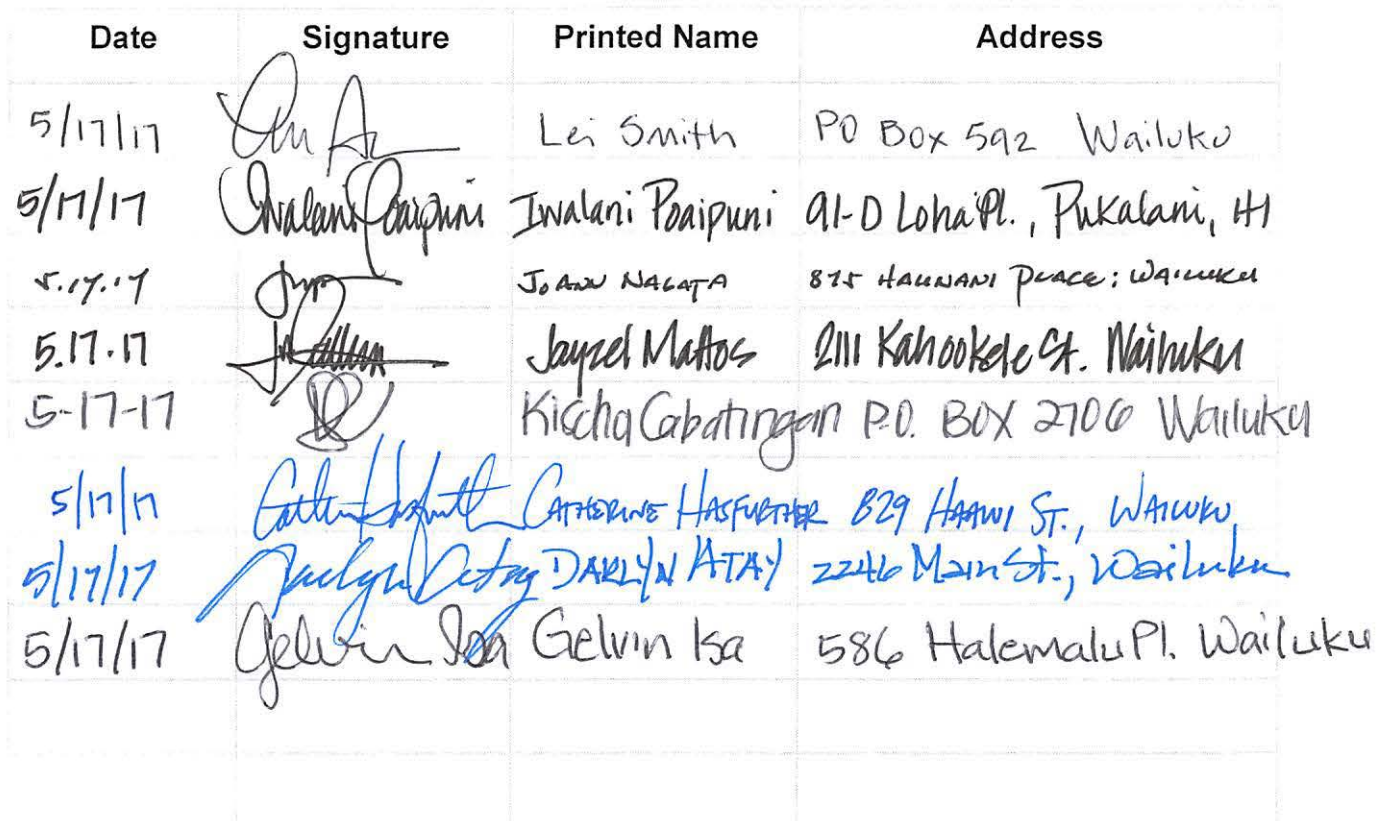 Date Signature Printed Name Address
5/17/17 Lei Smith PO Box 592 Wailuku
5/17/17 Iwalani Poaipuni Iwalani Poaipuni 91-D Loha Pl., Pukalani, HI
5.17.17 JOANN NAGATA 875 HAUNANI PLACE; WAILUKU
5.17.17 Jayzel Mattos 2111 Kahookele St. Wailuku
5-17-17 Kischa Cabatingan P.O. BOX 2706 Wailuku
5/17/17 CATHERINE HASFURTHER 829 HAAWI ST., WAILUKU
5/17/17 Darlyn Atay DARLYN ATAY 2246 Main St., Wailuku
5/17/17 Gelvin Isa Gelvin Isa 586 Halemalu Pl. Wailuku